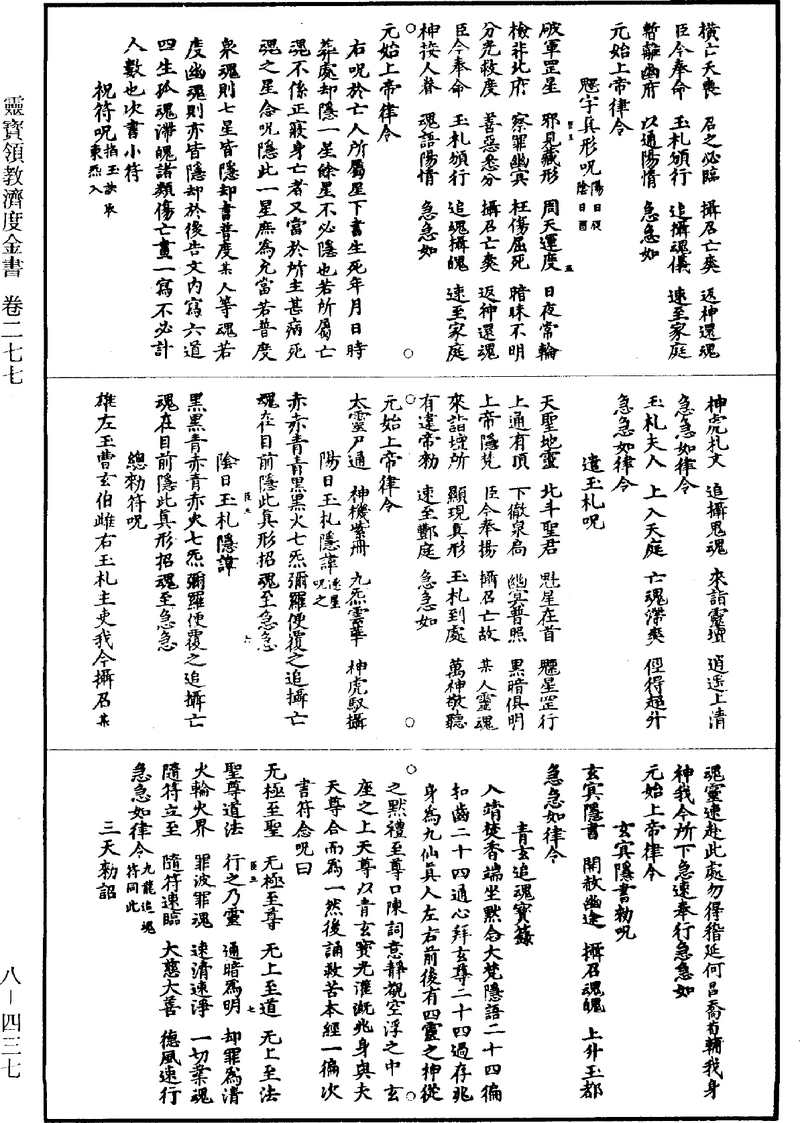 橫亡夭喪　君之必臨　攝召亡爽　返神還魂
臣今奉命　玉札頒行　追攝魂儀　速至家庭
暫離幽府　以通陽情　急急如
元始上帝律令
魒字真形呪 陽日辰 陰日酉
破軍罡星　邪見藏形　周天運度　日夜常輪
檢非北府　察罪幽冥　枉傷屈死　暗昧不明
分尧救度　善惡悉分　攝召亡爽　返神還魂
臣今奉命　玉札頒行　追魂攝魄　速至家庭
神接人眷　魂語陽情　急急如
元始上帝律令
右呪於亡人所屬星下書生死年月日時
葬處却隱一星餘星不必隱也若所屬亡
魂不係正寢身亡者又當於所主甚病死
魂之星念呪隱此一星庶為允當若普度
衆魂則七星皆隱却書普度某人等魂若
度幽魂則亦皆隱却於後告文內寫六道
四生孤魂滯魄諸類傷亡畫一寫不必計
人數也次書小符
祝符呪 指玉訣取 東炁入
神虎札文　追攝鬼魂　來詣靈壇　逍遙上清
急急如律令
玉札夫人　上入天庭　亡魂滯爽　俓得超昇
急急如律令
遣玉札呪
天聖地靈　北斗聖君　魁星在首　魒星罡行
上通有頂　下徹泉扃　幽冥普照　黑暗俱明
上帝隱梵　臣今奉揚　攝召亡故　某人靈魂
來詣壇所　顯現真形　玉札到處　萬神敬聽
有違帝勑　速至酆庭　急急如
元始上帝律令
太靈尸通　神機紫冊　九炁雲華　神虎馭攝
陽日玉札隱諱 逐星呪之
赤赤青青黑黑火七炁彌羅使覆之追攝亡
魂在目前隱此真形招魂至急急
陰日玉札隱諱
黑黑青赤青赤火七炁彌羅使覆之追攝亡
魂在目前隱此真形招魂至急急
總勑符呪
雄左玉曹玄伯雌右玉札主吏我今攝召某
魂靈速赴此處勿得稽延何呂喬荀輔我身
神我今所下急速奉行急急如
元始上帝律令
玄冥隱書勑呪
玄冥隱書　開赦幽途　攝召魂魄　上昇玉都
急急如律令
青玄追魂寶籙
入靖焚香端坐默念大梵隱語二十四徧
扣齒二十四通心拜玄尊二十四過存兆
身為九仙真人左右前後有四靈之神從
之默禮至尊口陳詞意靜觀空浮之中玄
座之上天尊以青玄寶光灌溉兆身與夫
天尊合而為一然後誦救苦本經一徧次
書符念呪曰
无極至聖　无極至尊　无上至道　无上至法
聖尊道法　行之乃靈　通暗為明　却罪為清
火輪火界　罪波罪魂　速清速淨　一切業魂
隨符立至　隨符速臨　大慈大善　德風速行
急急如律令 九龍追魂 符同此
三天勑詔
靈寶領教濟度金書　卷二七七
八—四三七